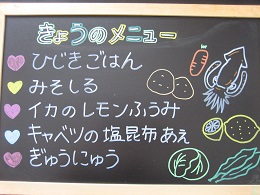 きょうのメニュー
ひじきごはん
みそしる
イカのレモンふうみ
キャベツの塩昆布あえ
ぎゅうにゅう